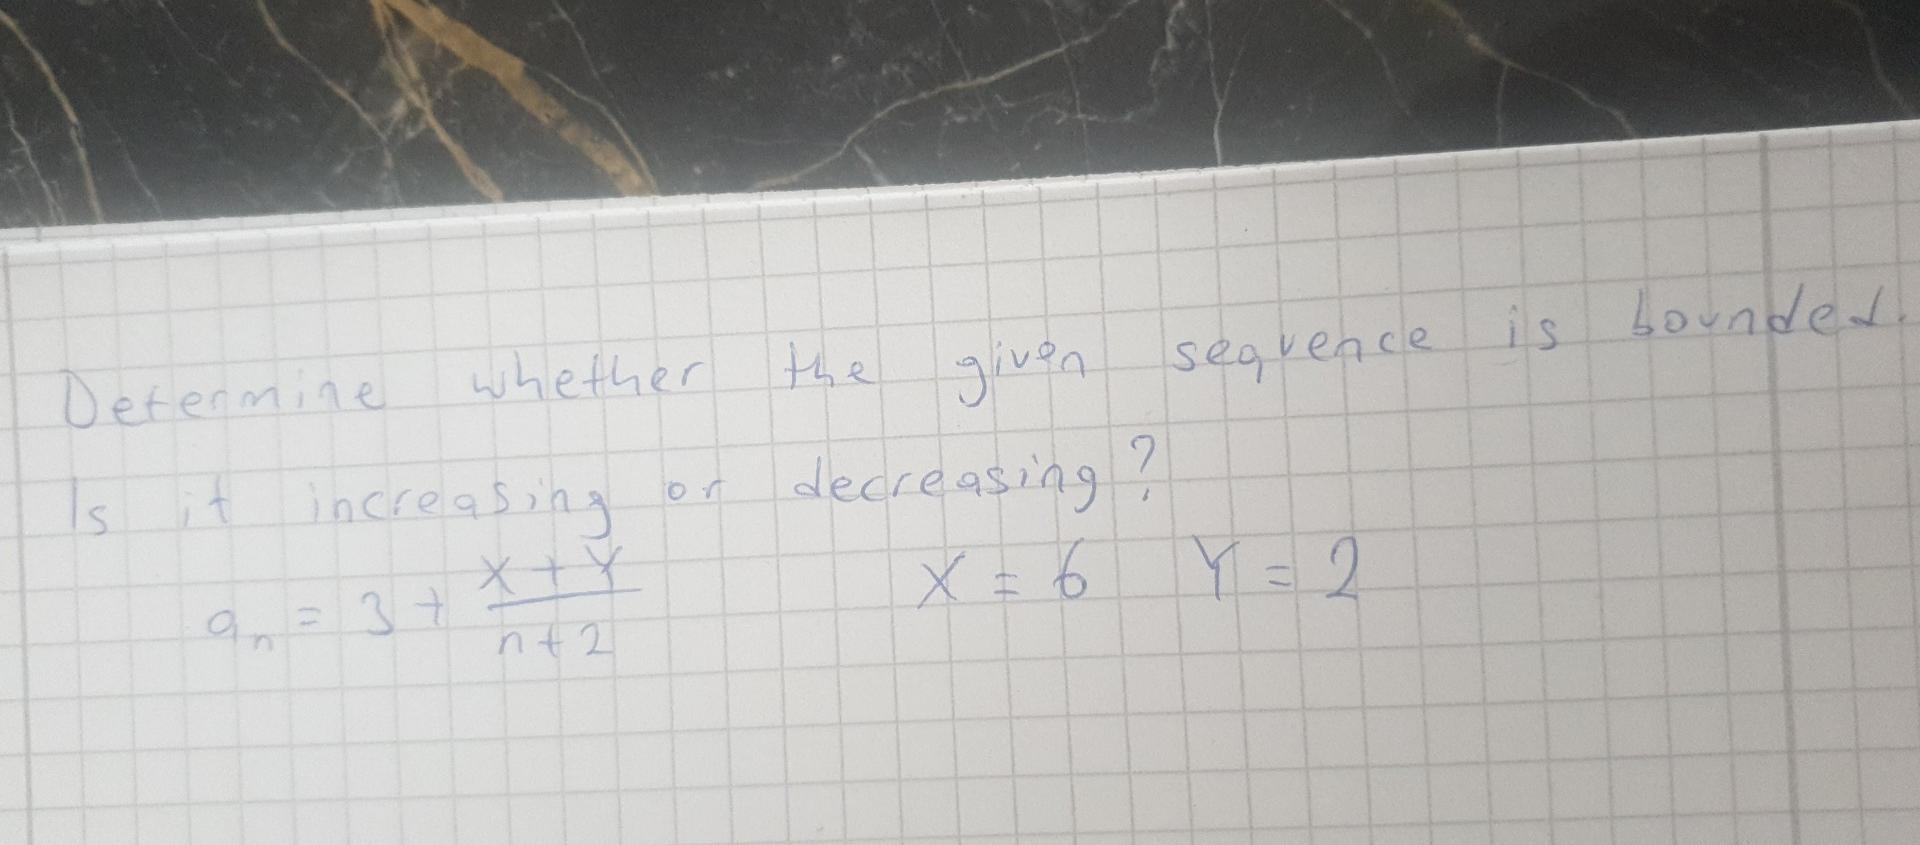 Determine whether the given sequence is bounded.
Is it increasing or decreasing?
aₙ = 3 + (X + Y)/(n + 2) X = 6 Y = 2